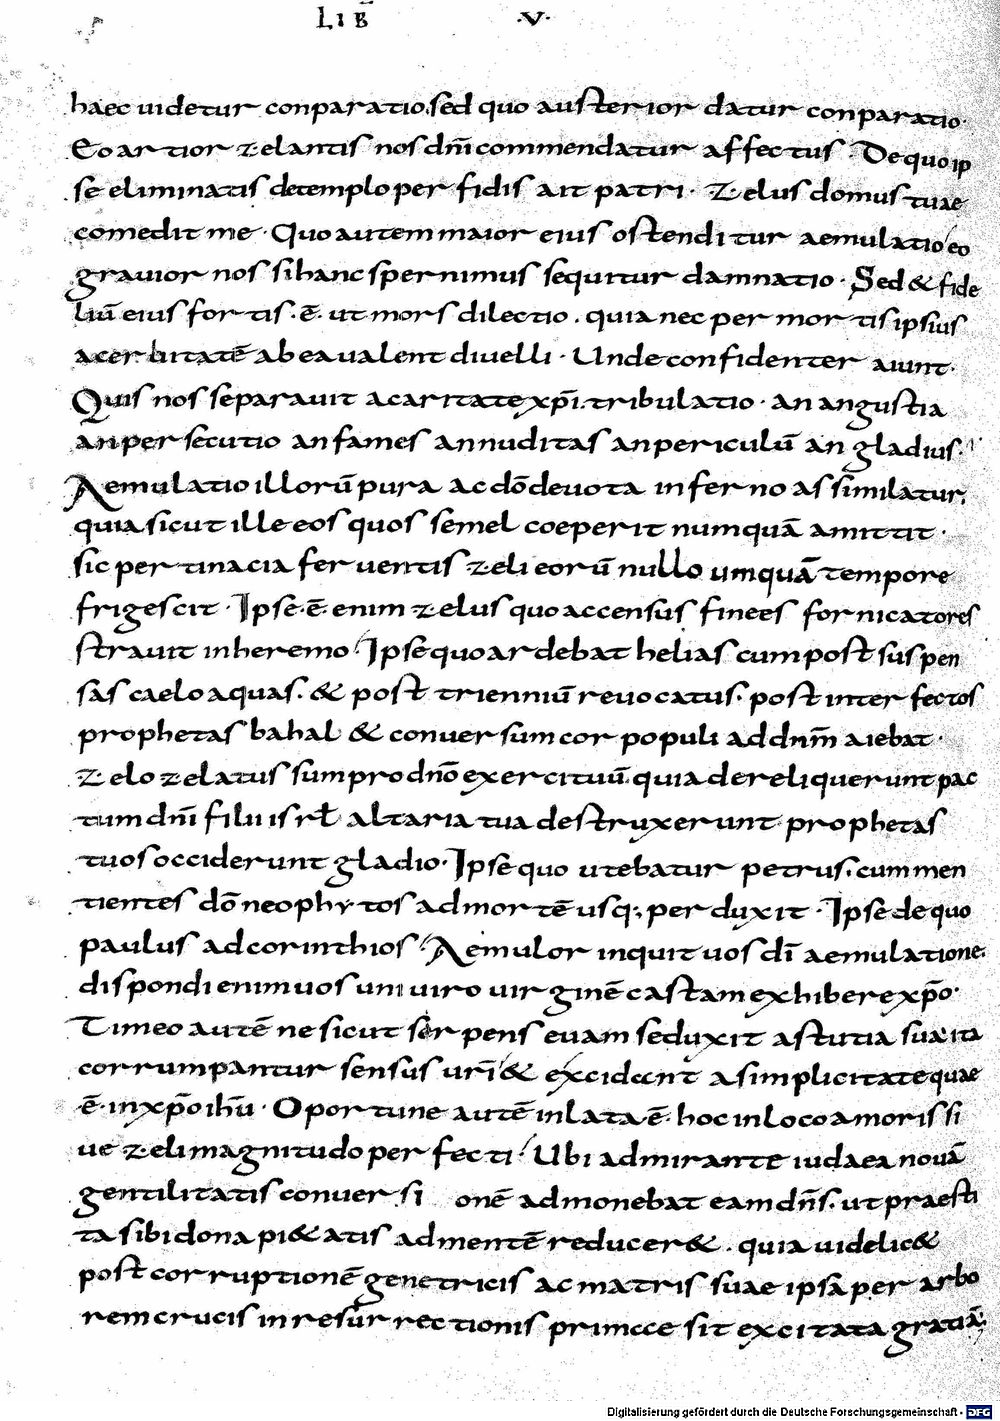 LIB̄ ·V·
haec uidetur conparatio. sed quo austerior datur conparatio·
Eo artior zelantis nos dn̄i commendatur affectus· De quo ip
se eliminatis de templo perfidis ait patri· Zelus domus tuae
comedit me· Quo autem maior eius ostenditur aemulatio eo
grauior nos si hanc spernimus sequitur damnatio· Sed & fide
liū eius fortis·ē· ut mors dilectio. quia nec per mortis ipsius
acerbitatē ab ea ualent diuelli· Unde confidenter aiunt·
Quis nos separauit a caritate xp̄i. tribulatio· an angustia
an persecutio an fames an nuditas an periculū an gladius·
Aemulatio illorū pura ac dō deuota inferno assimilatur,
quia sicut ille eos quos semel coeperit numquā amittit·
sic pertinacia feruentis zeli eorū nullo umquā tempore
frigescit· Ipse·ē· enim zelus quo accensus finees fornicatores
strauit in heremo· Ipse quo ardebat helias cum post suspen
sas caelo aquas· & post trienniū reuocatus· post interfectos
prophetas bahal & conuersum cor populi ad dn̄m aiebat·
Zelo zelatus sum pro dn̄o exercituū. quia dereliquerunt pac
tum dn̄i filii isrl̄ altaria tua destruxerunt· prophetas
tuos occiderunt gladio· Ipse quo utebatur petrus· cum men
tientes dō neophytos ad mortē usq; perduxit· Ipse de quo
paulus ad corinthios· Aemulor inquit uos dī aemulatione·
dispondi enim uos uni uiro uirginē castam exhibere xp̄o·
Timeo autē ne sicut serpens euam seduxit astutia sua ita
corrumpantur sensus ur̄i & excidcnt a simplicitate quae
·ē· in xp̄o ih̄u· Oportune autē inlata·ē· hoc in loco amoris si
ue zeli magnitudo perfecti· Ubi admirante iudaea nouā
gentilitatis conuersi onē admonebat eam dn̄s. ut praesti
ta sibi dona pi&atis ad mentē reducer&· quia uidelic&
post corruptionē genetricis ac matris suae ipsā per arbo
rem crucis in resurrectionis primcce sit excitata gratiā;
Digitalisierung gefördert durch die Deutsche Forschungsgemeinschaft - DFG